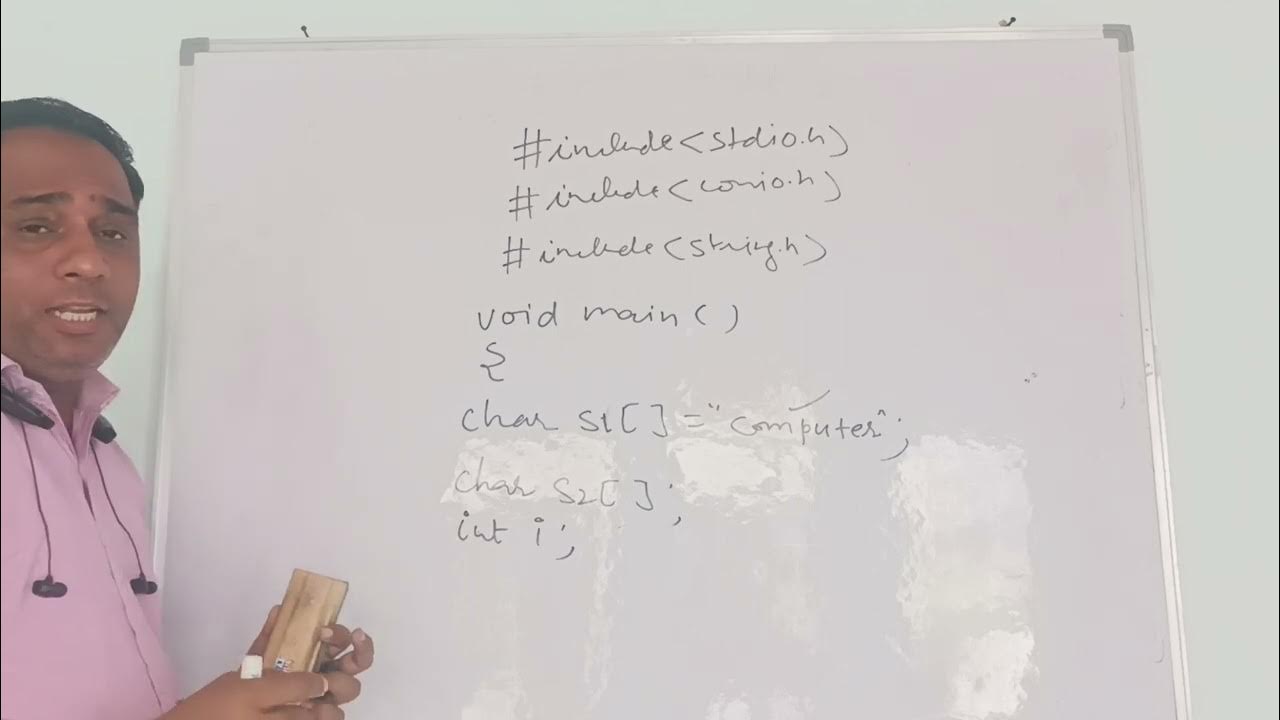 #include<stdio.h)
#include(conio.h)
#include(string.h)
void main()
{
char s1[]="computer";
char s2[];
int i;